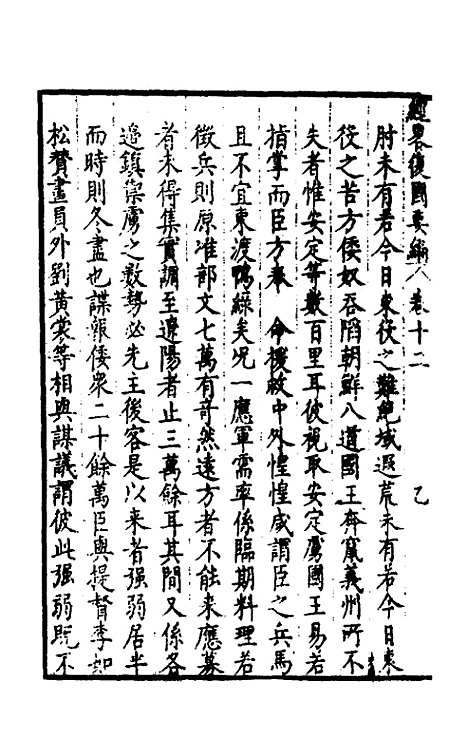 經畧復國要編 卷十二 乙
肘未有若今日東役之難絶域遐荒未有若今日東
役之苦方倭奴吞陷朝鮮八道國王奔竄義州所不
失者惟安定等數百里耳彼視取安定虜國王易若
指掌而臣方奉 命機敕中外惶惶咸謂臣之兵馬
且不宜東渡鴨綠矣况一應軍需率係臨期料理若
徵兵則原准部文七萬有奇然遠方者不能來應募
者未得集實調至遼陽者止三萬餘耳其間又係各
邊鎮禦虜之數勢必先王後客是以来者强弱居半
而時則冬盡也諜報倭衆二十餘萬臣與提督李如
松賛畫員外劉黄裳等相與謀議謂彼此强弱既不